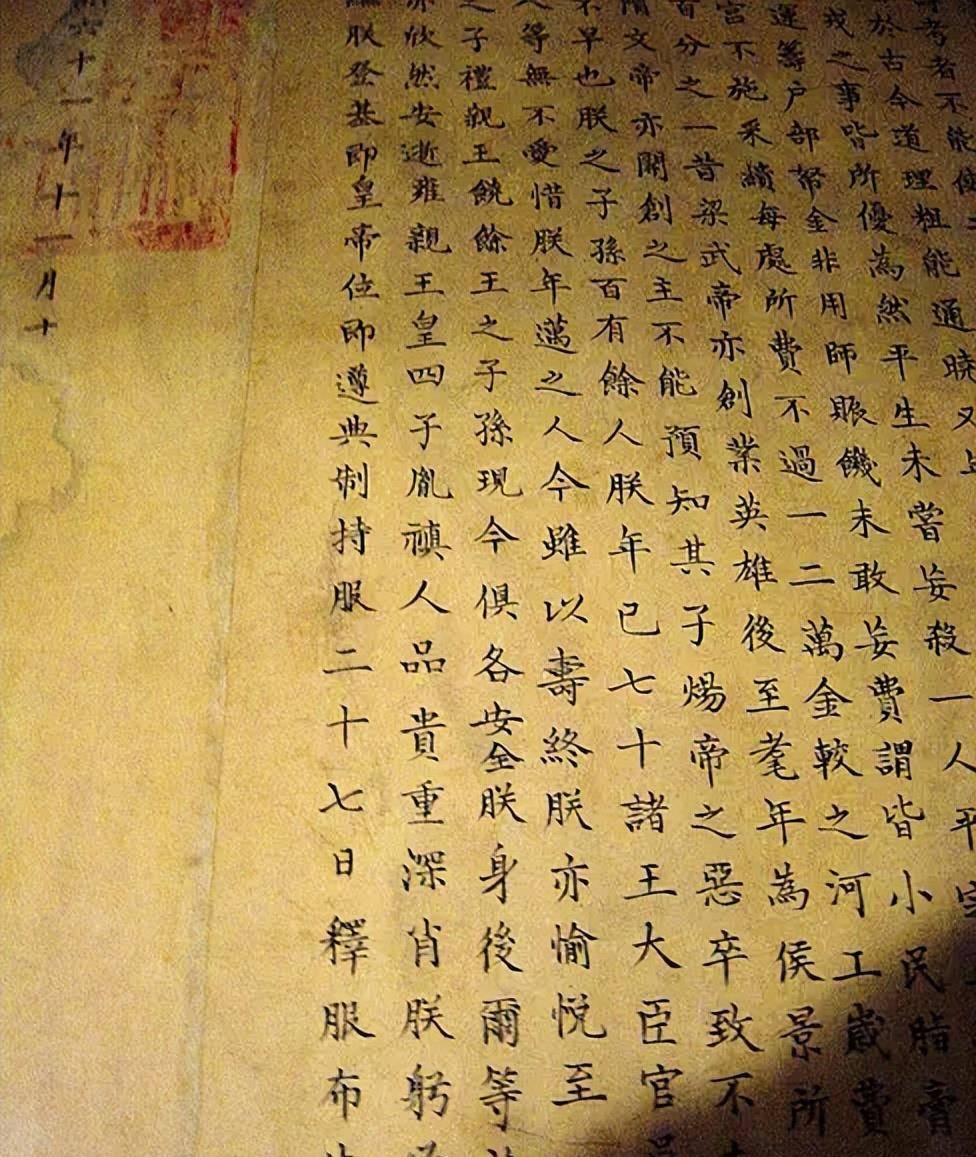 者不能
於古今道理粗能通曉又
戎之事皆所優為然平生未嘗妄殺一人平
運籌户部帑金非用師賑饑未敢妄費謂皆小民脂膏
宮不施采繢每處所費不過一二萬金較之河工歲費
百分之一昔梁武帝亦創業英雄後至耄年為侯景所
隋文帝亦開創之主不能預知其子煬帝之惡卒致不
不早也朕之子孫百有餘人朕年已七十諸王大臣官
人等無不愛惜朕年邁之人今雖以壽終朕亦愉悅至
之子禮親王饒餘王之子孫現今俱各安全朕身後爾等
亦欣然安逝雍親王皇四子胤禛人品貴重深肖朕躬
朕登基即皇帝位即遵典制持服二十七日釋服布
六十一年十一月十